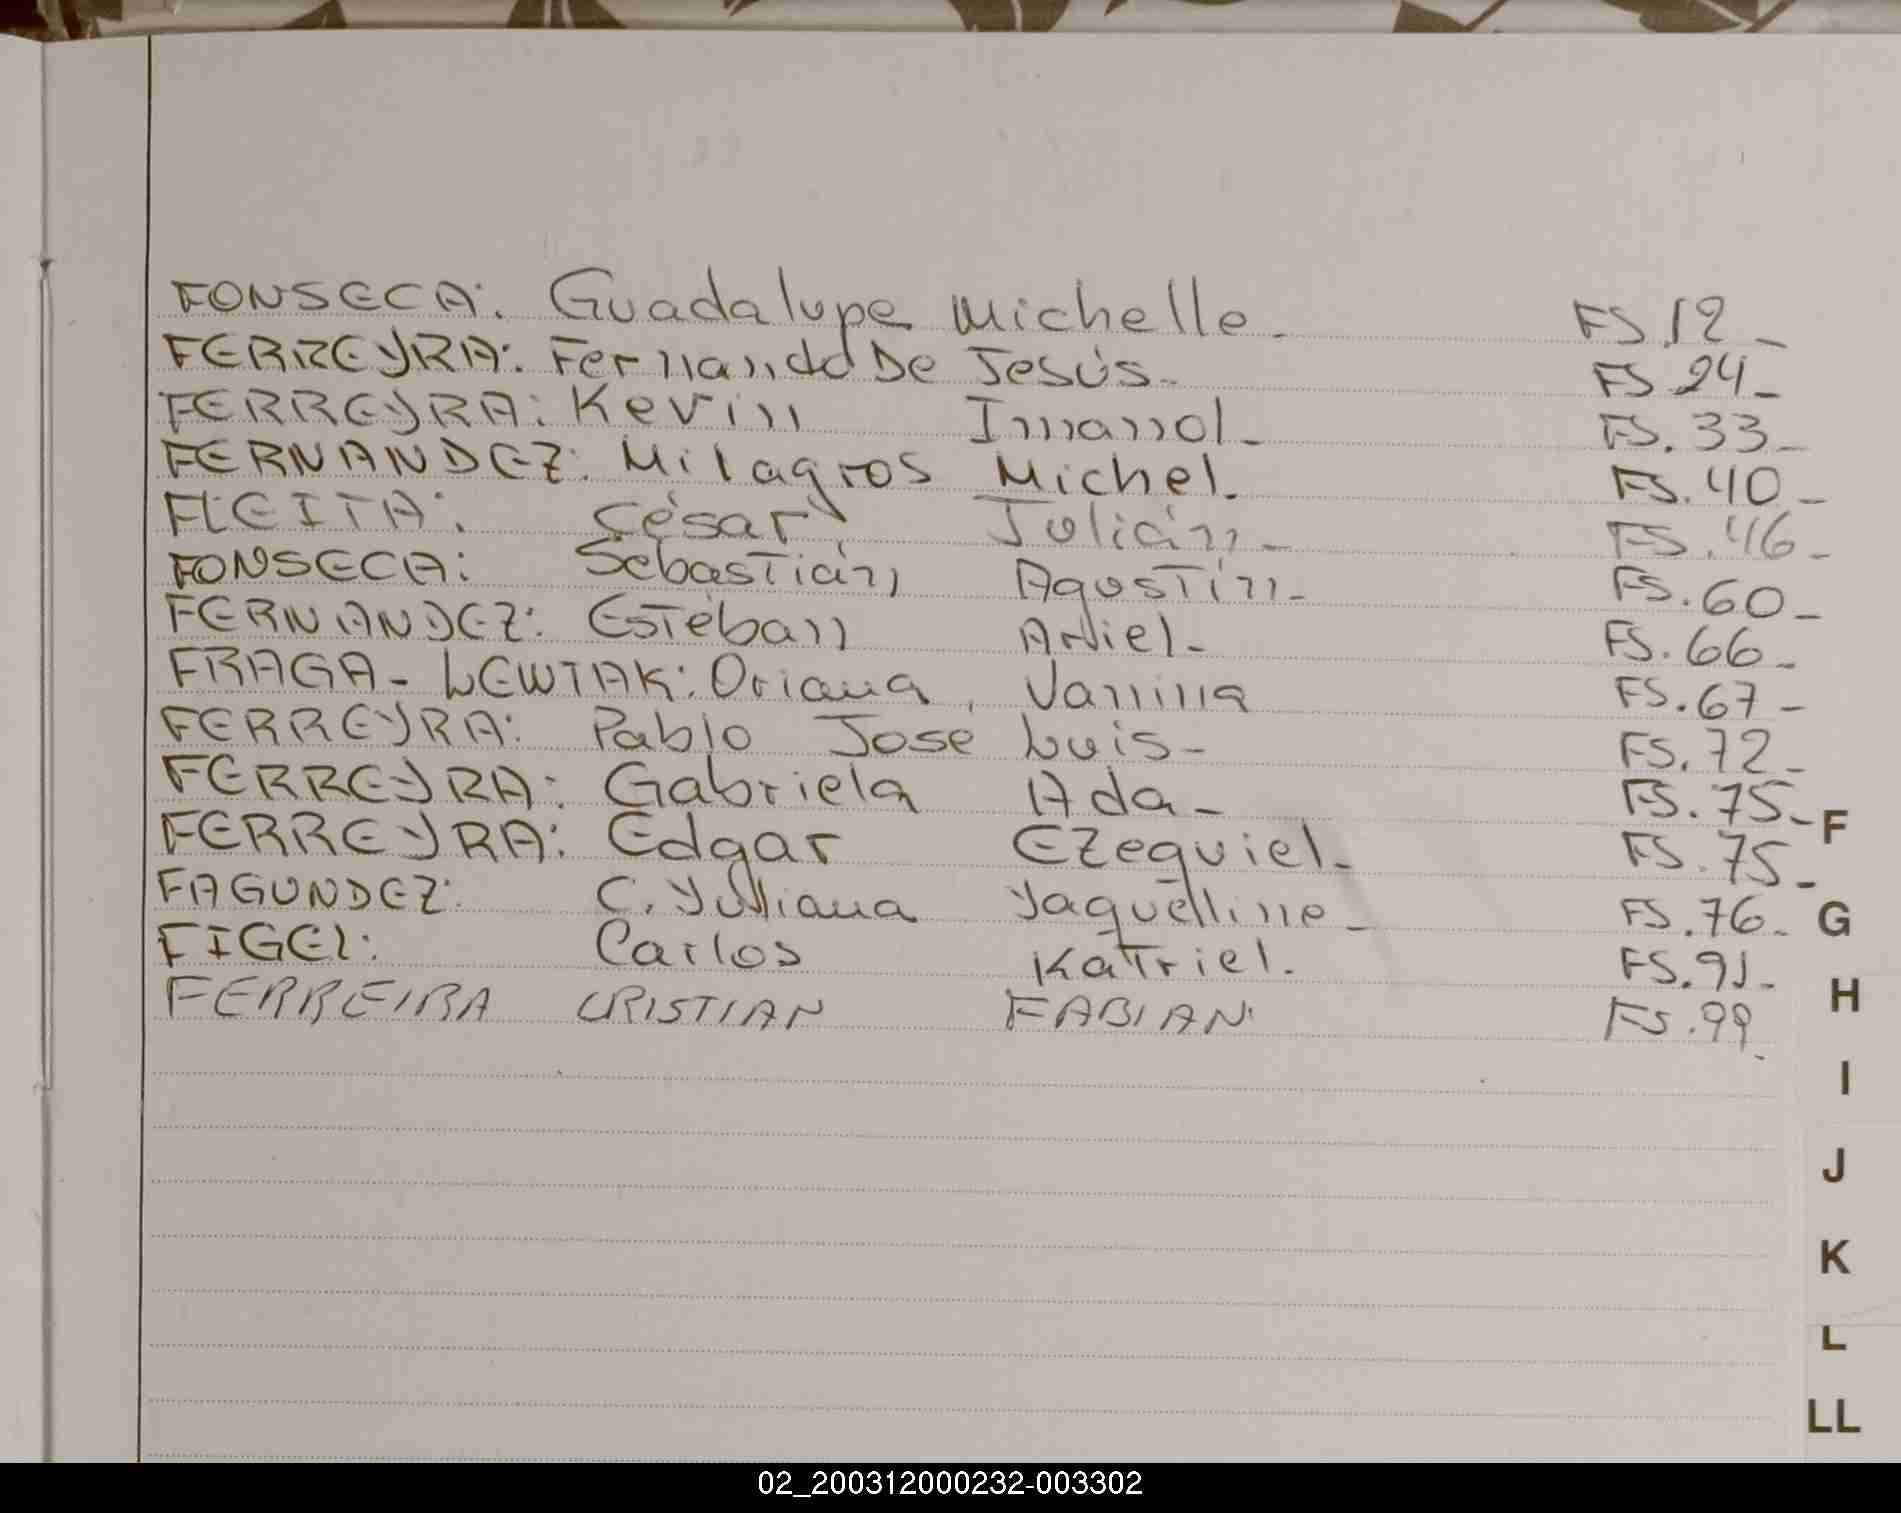 FONSECA: Guadalupe Michelle- FS.12-
FERREYRA: Fernando De Jesús- FS.24-
FERREYRA: Kevin Imanol- FS.33-
FERNANDEZ: Milagros Michel. FS.40-
FLEITA: César Julián- FS.46-
FONSECA: Sebastián Agustín- FS.60-
FERNANDEZ: Esteban Ariel- FS.66-
FRAGA- LEWTAK: Oriana, Vanina FS.67-
FERREYRA: Pablo Jose Luis- FS.72-
FERREYRA: Gabriela Ada- FS.75-
FERREYRA: Edgar Ezequiel- FS.75-
FAGUNDEZ: C. Yulliana Yaquelline- FS.76-
FIGEL: Carlos Katriel. FS.91-
FERREIRA CRISTIAN FABIAN FS.99-
F
G
H
I
J
K
L
LL
02_200312000232-003302